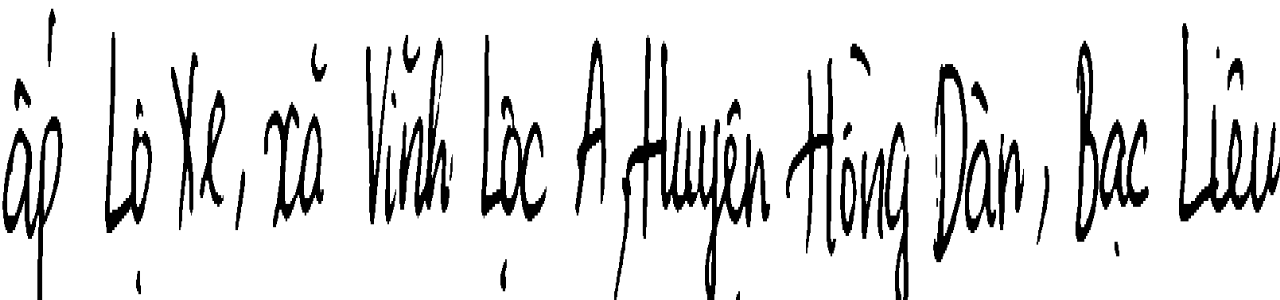 ấp Lộ Xe, xã Vĩnh Lộc A, Huyện Hồng Dân, Bạc Liêu